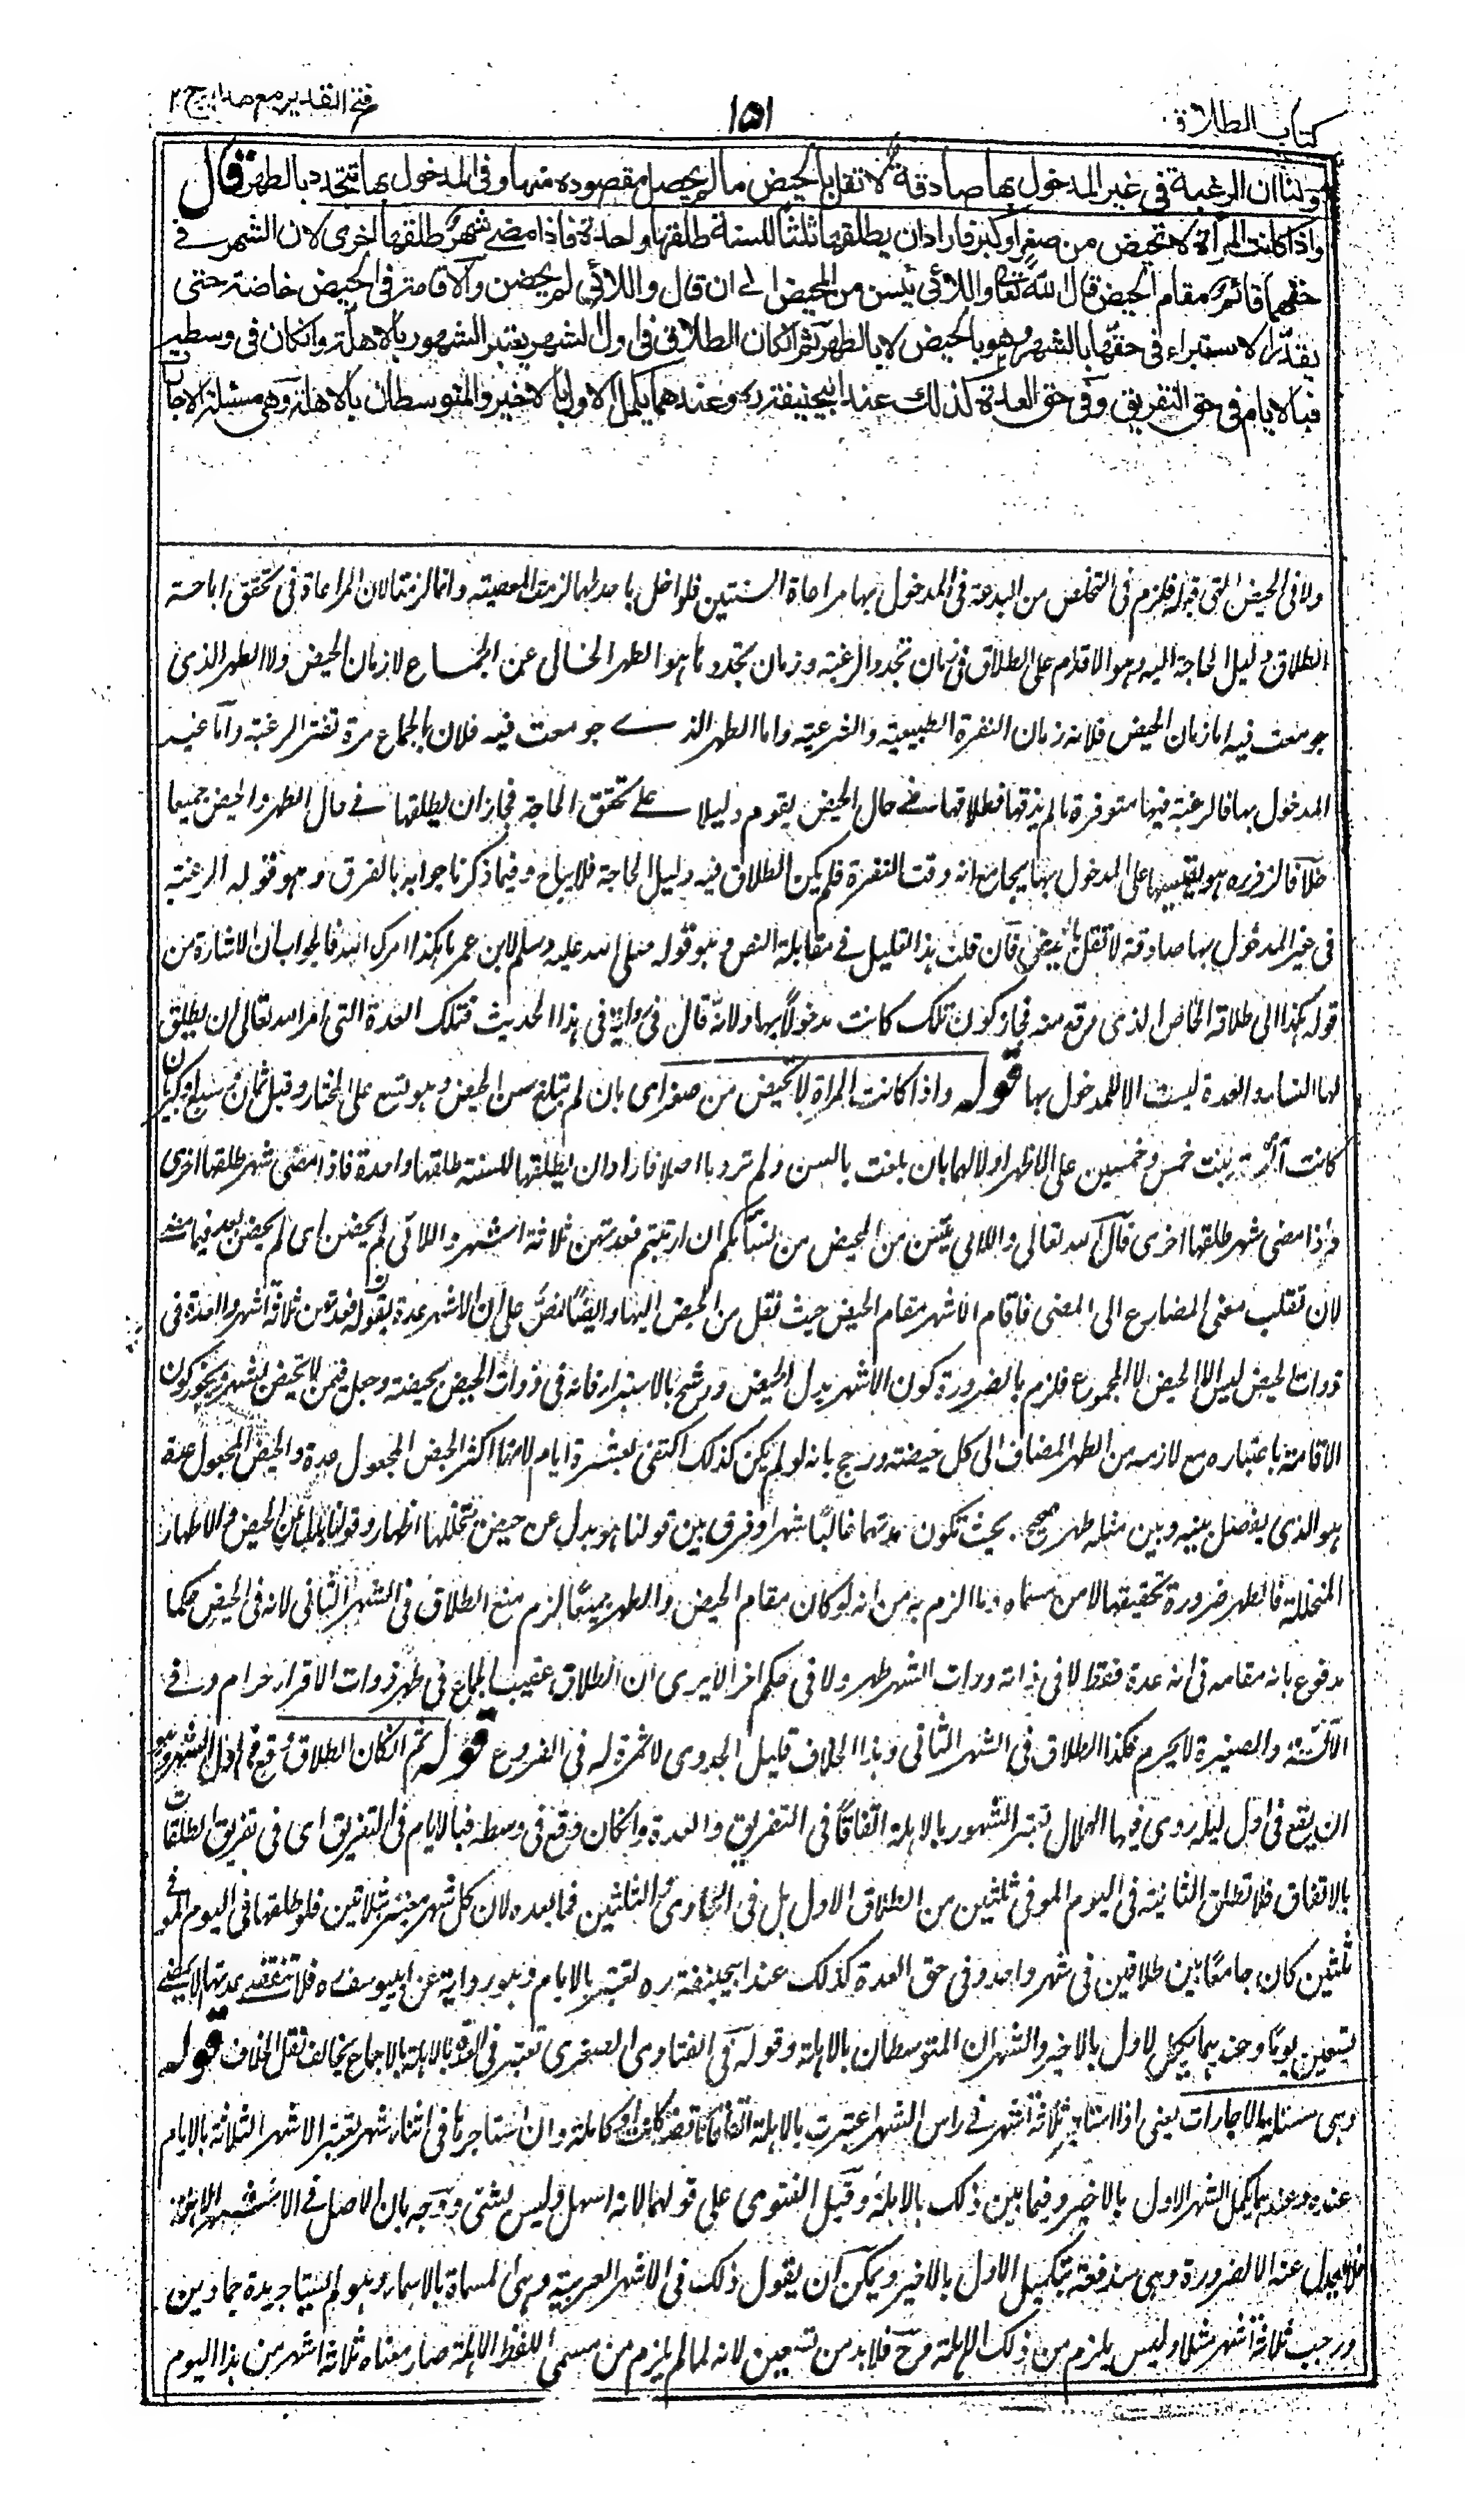 كتاب الطلاق
١٥١
فتح القدير مع هدايه ج ٢
ولنا ان الرغبة في غير المدخول بها صادقة لا تقل بالحيض ما لم يحصل مقصوده منها وفى المدخول بها تتجدد بالطهر قال
واذا كانت المرأة لا تحيض من صغر او كبر فاراد ان يطلقها ثلثا للسنة طلقها واحدة فاذا مضى شهر طلقها اخرى لان الشهر فى
حقهما قائم مقام الحيض قال الله تعالى واللائي يئسن من المحيض الى ان قال واللائي لم يحضن والاقامة فى الحيض خاصة حتى
يقدر الاستبراء فى حقها بالشهر وهو بالحيض لا بالطهر ثم ان كان الطلاق فى اول الشهر يعتبر الشهور بالاهلة وان كان فى وسطه
فبالايام فى حق التفريق وفى حق العدة كذلك عند ابيحنيفة ره وعندهما يكمل الاول بالاخير والمتوسطان بالاهلة وهى مسئلة الاجارات
ولا فى الحيض التى قبله فلزم فى التخلص من البدعة فى المدخول بها مراعاة السنتين فلو اخل باحدهما لزمت المعصية وانما لزمتا لان المراعاة فى تحقق اباحة
الطلاق دليل الحاجة اليه وهو الاقدام على الطلاق فى زمان تجدد الرغبة وزمان تجددها هو الطهر الخالى عن الجماع لا زمان الحيض ولا الطهر الذى
جومعت فيه اما زمان الحيض فلانه زمان النفرة الطبيعية والشرعية واما الطهر الذى جومعت فيه فلان بالجماع مرة تفتر الرغبة واما غير
المدخول بها فالرغبة فيها متوفرة ما لم يذقها فطلاقها فى حال الحيض يقوم دليلا على تحقق الحاجة فجاز ان يطلقها فى حال الطهر والحيض جميعا
خلافا لزفر ره هو يقيسها على المدخول بها بجامع انه وقت النفرة فلم يكن الطلاق فيه دليل الحاجة فلا يباح وفيما ذكرنا جوابه بالفرق وهو قوله الرغبة
فى غير المدخول بها صادقة لا تقل بالحيض فان قلت هذا التعليل فى مقابلة النص وهو قوله صلى الله عليه وسلم لابن عمر ما هكذا امرك الله فالجواب ان الاشارة من
قوله هكذا الى طلاقه الخاص الذى وقع منه فجاز كون تلك كانت مدخولا بها ولانه قال فى رواية فى هذا الحديث فتلك العدة التى امر الله تعالى ان يطلق
لها النساء والعدة ليست الا للمدخول بها قوله واذا كانت المرأة لا تحيض من صغر اى بان لم تبلغ سن الحيض وهو تسع على المختار وقيل ثمان وسبع او كبر بان
كانت آئسة بنت خمس وخمسين على الاظهر او لا لهما بان بلغت بالسن ولم تر دما اصلا فاراد ان يطلقها للسنة طلقها واحدة فاذا مضى شهر طلقها اخرى
فاذا مضى شهر طلقها اخرى قال الله تعالى واللائى يئسن من المحيض من نسائكم ان ارتبتم فعدتهن ثلاثة اشهر واللائى لم يحضن اى لم يحضن بعد فيما مضى
لان تقلب معنى المضارع الى المضى فاقام الاشهر مقام الحيض حيث نقل من الحيض اليها وايضا نص على ان الاشهر عدة بقوله فعدتهن ثلاثة اشهر والعدة فى
ذوات الحيض ليس الا الحيض لا المجموع فلزم بالضرورة كون الاشهر بدل الحيض ورشح بالاستبراء فانه فى ذوات الحيض بحيضة وجعل فيمن لا تحيض بشهر ويجوز كون
الاقامة باعتباره مع لازمه من الطهر المضاف الى كل حيضة ورجح بانه لو لم يكن كذلك اكتفى بعشرة ايام لانها اكثر الحيض المجعول عدة والحيض المجعول عدة
هو الذى يفصل بينه وبين مثله طهر صحيح بحيث تكون عدتهما غالبا شهرا وفرق بين قولنا هو بدل عن حيض تتخللها اطهار وقولنا بدل عن الحيض والاطهار
المتخللة فالطهر ضرورة تحقيقها لا من مسماه وما الزم به من انه لو كان مقام الحيض والطهر جميعا لزم منع الطلاق فى الشهر الثانى لانه فى الحيض حكما
مدفوع بانه مقامه فى انه عدة فقط لا فى ذاته وذات الشهر طهر ولا فى حكم اخر الا يرى ان الطلاق عقيب الجماع فى طهر ذوات الاقراء حرام وفى
الآئسة والصغيرة لا يحرم فكذا الطلاق فى الشهر الثانى وهذا الخلاف قليل الجدوى لا ثمرة له فى الفروع قوله ثم ان كان الطلاق وقع فى اول الشهر وهو
ان يقع فى اول ليلة رؤى فيها الهلال تعتبر الشهور بالاهلة اتفاقا فى التفريق والعدة وان كان وقع فى وسطه فبالايام فى التفريق اى فى تفريق الطلقات
بالاتفاق فلا تطلق الثانية فى اليوم الموفى ثلثين من الطلاق الاول بل فى الحادى والثلثين فما بعده لان كل شهر معتبر بثلاثين فلو طلقها فى اليوم الموفى
ثلثين كان جامعا بين طلاقين فى شهر واحد وفى حق العدة كذلك عند ابيحنيفة ره تعتبر بالايام وهو رواية عن ابيوسف ره فلا تنقضى عدتها الا بمضى
تسعين يوما وعندهما يكمل الاول بالاخير والشهران المتوسطان بالاهلة وقوله فى الفتاوى الصغرى تعتبر فى العدة بالاهلة بالاجماع يخالف نقل الخلاف قوله
وهى مسئلة الاجارات يعنى اذا استاجر ثلاثة اشهر فى راس الشهر اعتبرت بالاهلة اتفاقا ناقصة كانت او كاملة وان استاجرها فى اثناء شهر تعتبر الاشهر الثلاثة بالايام
عنده وعندهما يكمل الشهر الاول بالاخير وفيما بين ذلك بالاهلة وقيل الفتوى على قولهما لانه اسهل وليس بشئ ووجه بان الاصل فى الاشهر الاهلة
فلا يعدل عنه الا لضرورة وهى مندفعة بتكميل الاول بالاخير ويمكن ان يقول ذلك فى الاشهر العربية وهى المسماة بالاسماء وهو لم يستاجر مدة جمادين
ورجب ثلاثة اشهر مثلا وليس يلزم من ذلك الاهلة وح فلا بد من تسعين لانه لما لم يلزم من مسمى اللفظ الاهلة صار معناه ثلاثة اشهر من هذا اليوم